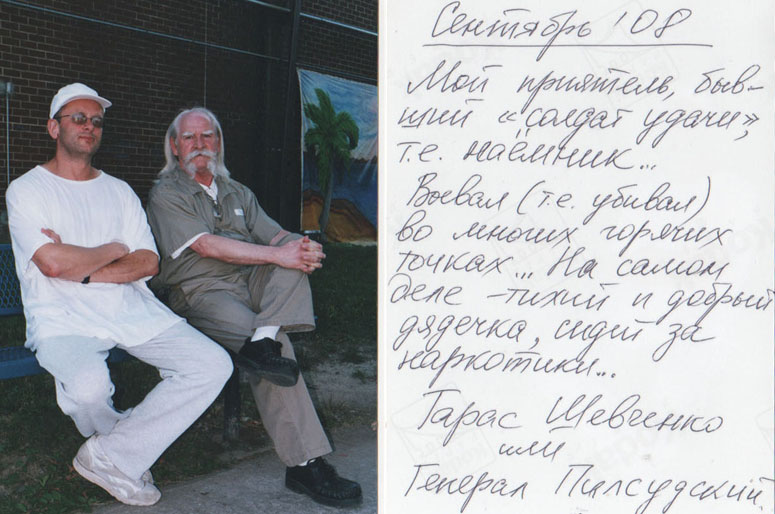 Сентябрь '08
Мой приятель, быв-
ший «солдат удачи»,
т.е. наёмник...
Воевал (т.е. убивал)
во многих горячих
точках... На самом
деле – тихий и добрый
дядечка, сидит за
наркотики...
Тарас Шевченко
или
Генерал Пилсудский.